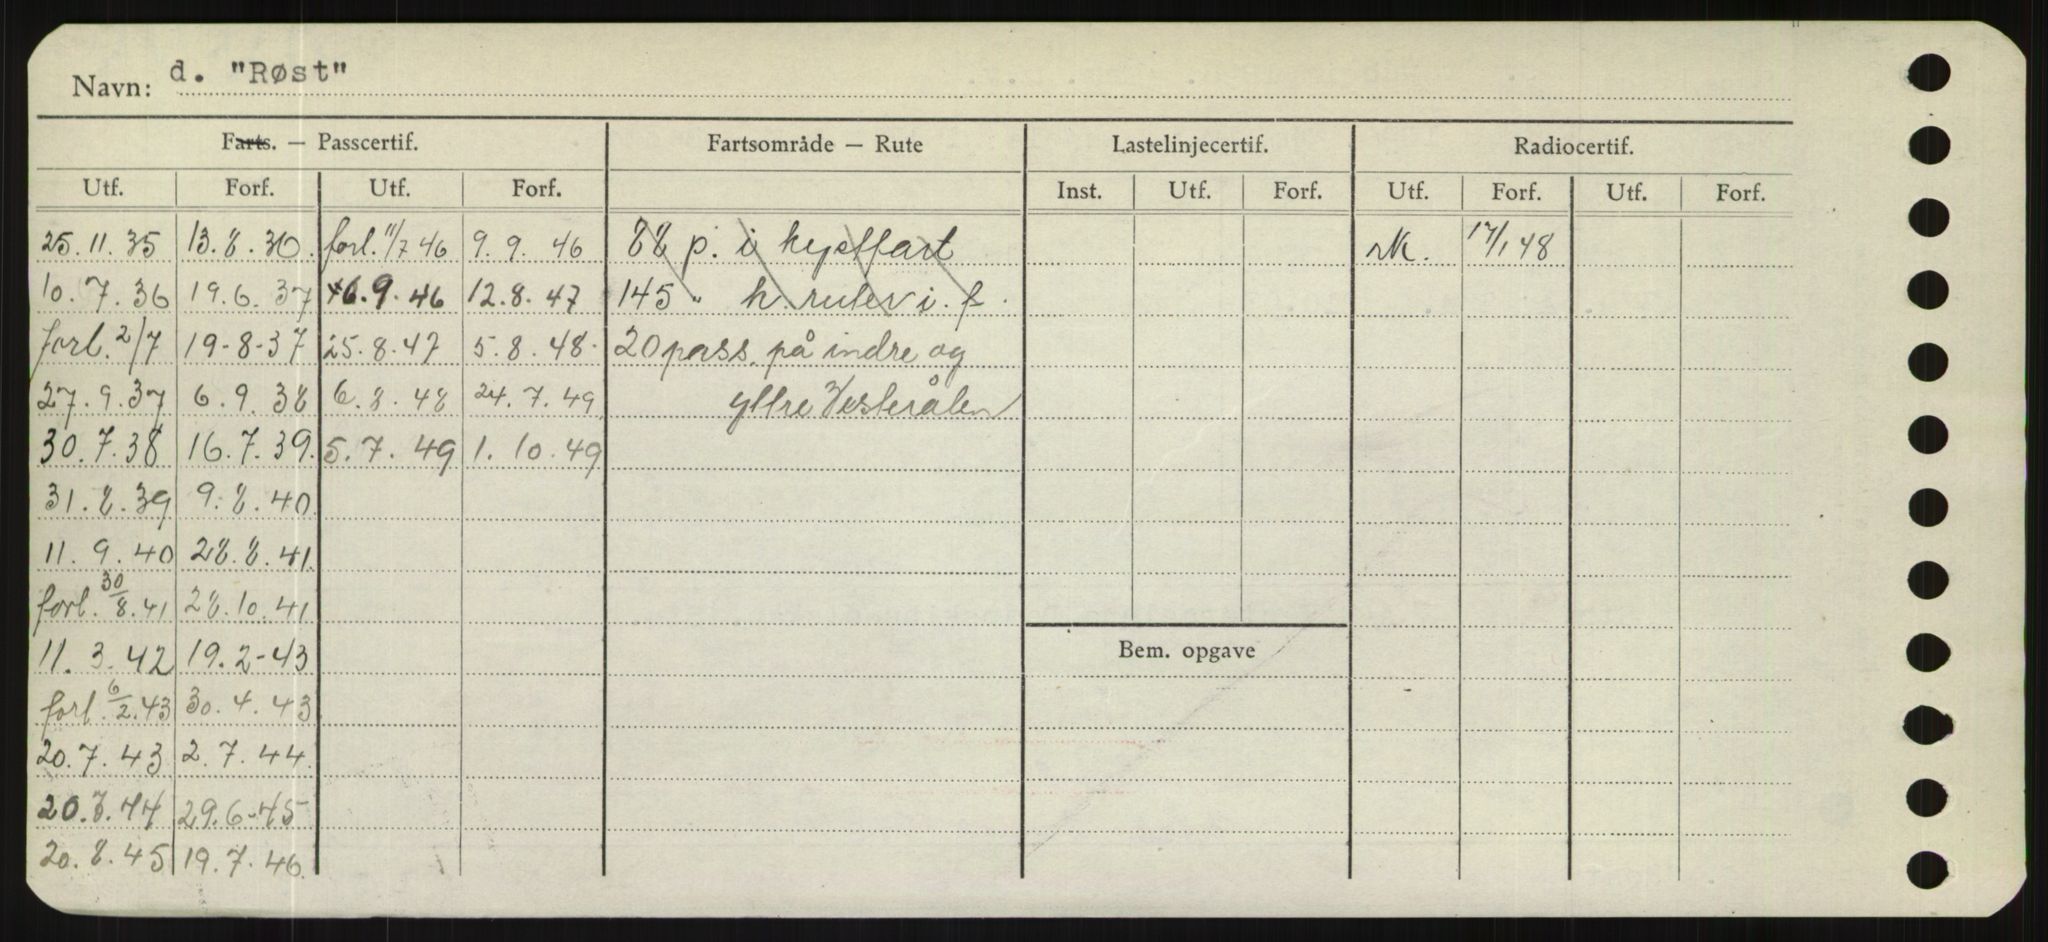 Navn: d. "Røst"
Farts. — Passcertif. Fartsområde — Rute Lastelinjecertif. Radiocertif.
Utf. Forf. Utf. Forf. Inst. Utf. Forf. Utf. Forf. Utf. Forf.
25.11.35 13.8.36. forl. 11/7 46 9.9.46 88 p. i kystfart rk. 17/1 48
10.7.36 19.6.37 6.9.46 12.8.47 145 " h. ruter i. f.
forl. 2/7 19-8-37 25.8.47 5.8.48. 20 pass. på indre og
27.9.37 6.9.38 6.8.48 24.7.49 yttre Vesterålen
30.7.38 16.7.39. 5.7.49 1.10.49
31.8.39 9.8.40
11.9.40 28.8.41.
forl. 30/8.41 28.10.41
11.3.42 19.2-43
Bem. opgave
forl. 6/2.43 30.4.43
20.7.43 2.7.44
20.7.44 29.6-45
20.8.45 19.7.46.